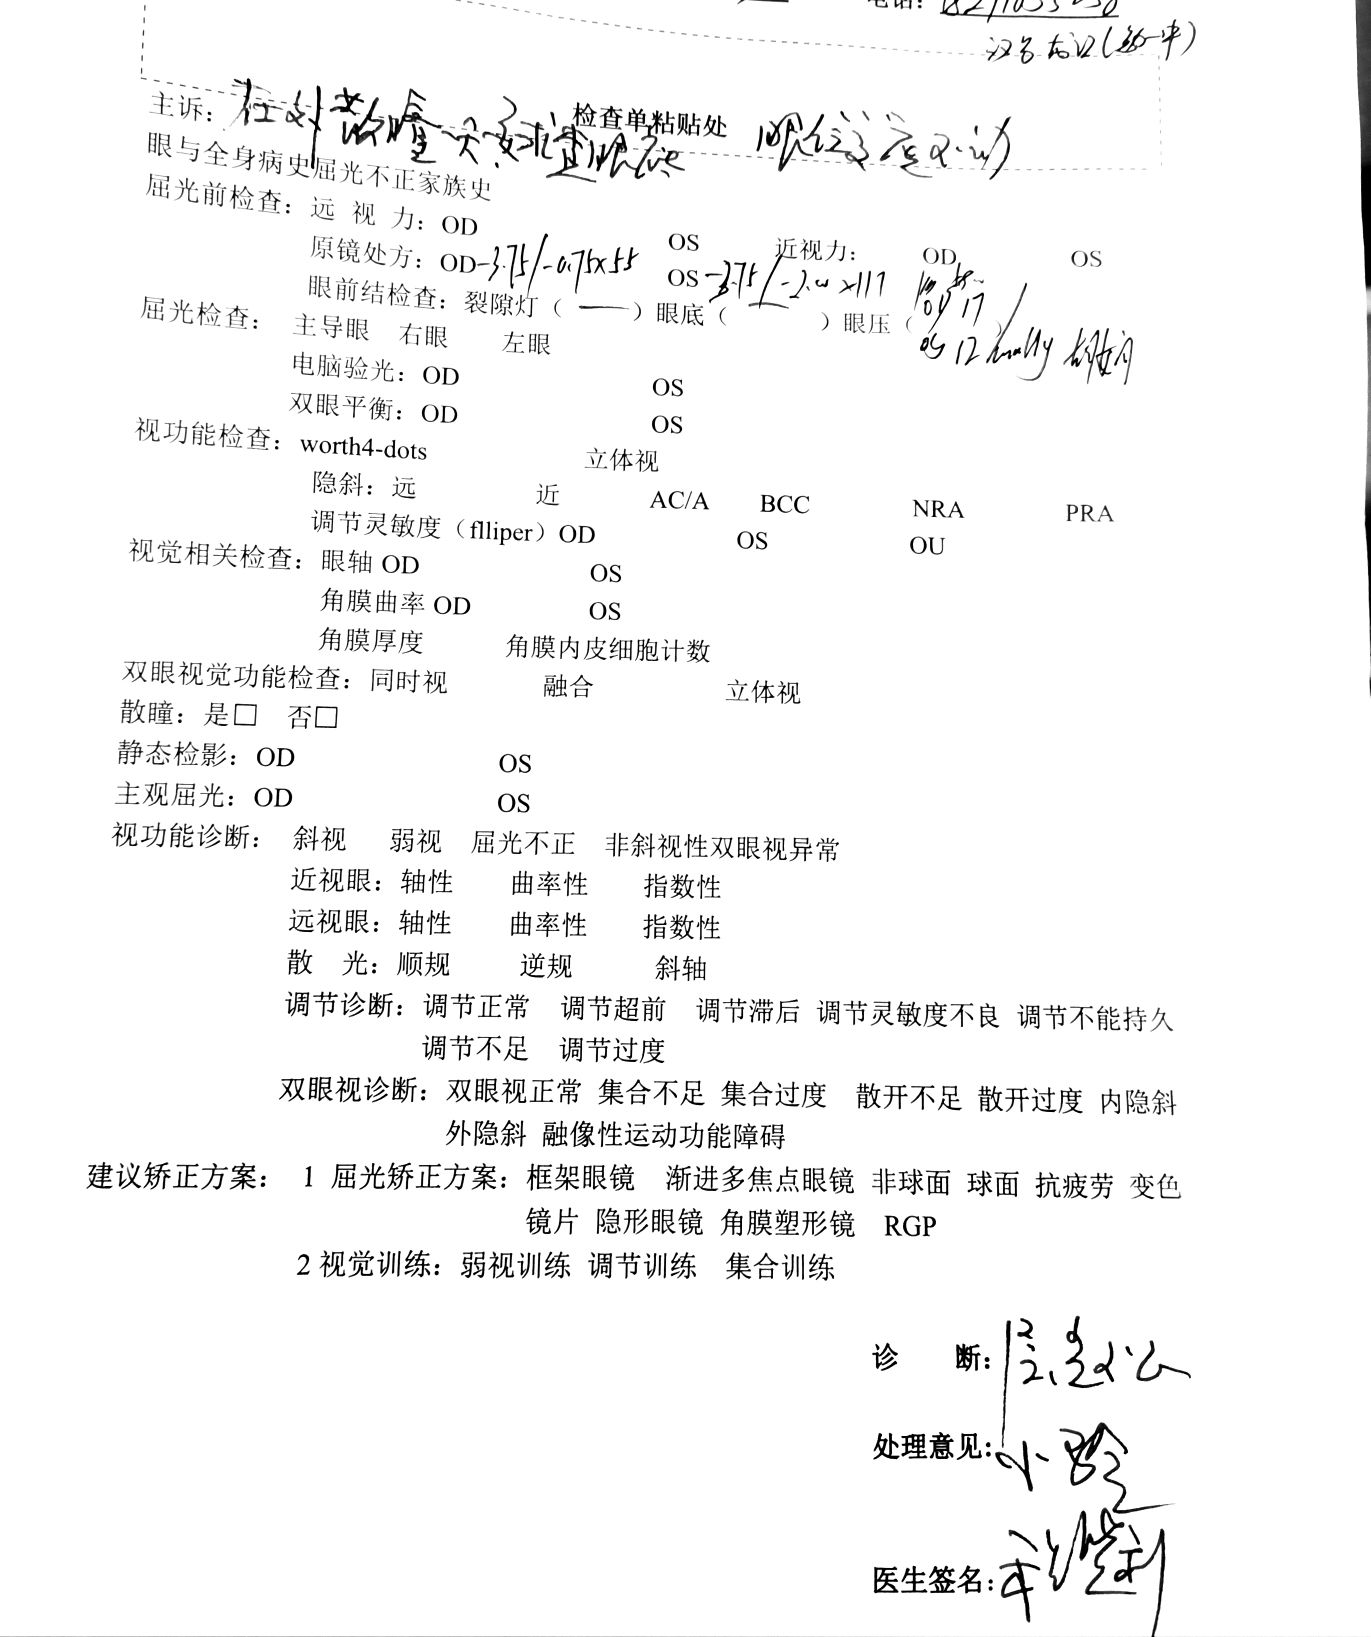 电话:
主诉: 在外散瞳 要求查眼底 检查单粘贴处
眼与全身病史屈光不正家族史
屈光前检查: 远 视 力: OD OS 近视力: OD OS
原镜处方: OD -3.75/-0.75×55 OS -3.75/-2.00×117
眼前结检查: 裂隙灯( — )眼底( — )眼压( OD 17
OS 12 mmHg
屈光检查: 主导眼 右眼 左眼
电脑验光: OD OS
双眼平衡: OD OS
视功能检查: worth4-dots 立体视
隐斜: 远 近 AC/A BCC NRA PRA
调节灵敏度(flliper)OD OS OU
视觉相关检查: 眼轴 OD OS
角膜曲率 OD OS
角膜厚度 角膜内皮细胞计数
双眼视觉功能检查: 同时视 融合 立体视
散瞳: 是□ 否□
静态检影: OD OS
主观屈光: OD OS
视功能诊断: 斜视 弱视 屈光不正 非斜视性双眼视异常
近视眼: 轴性 曲率性 指数性
远视眼: 轴性 曲率性 指数性
散 光: 顺规 逆规 斜轴
调节诊断: 调节正常 调节超前 调节滞后 调节灵敏度不良 调节不能持久
调节不足 调节过度
双眼视诊断: 双眼视正常 集合不足 集合过度 散开不足 散开过度 内隐斜
外隐斜 融像性运动功能障碍
建议矫正方案: 1 屈光矫正方案: 框架眼镜 渐进多焦点眼镜 非球面 球面 抗疲劳 变色
镜片 隐形眼镜 角膜塑形镜 RGP
2 视觉训练: 弱视训练 调节训练 集合训练
诊 断:
处理意见:
医生签名: